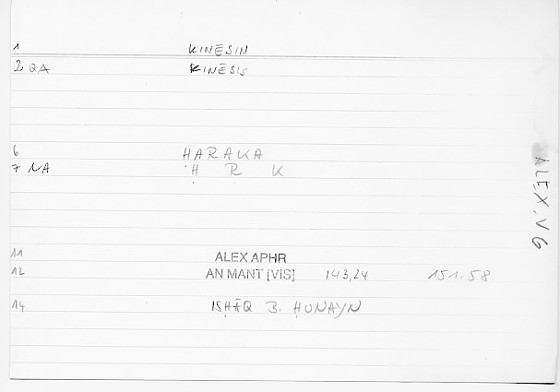 1 KINĒSIN
2 QA KINĒSIS
6 HARAKA
7 NA Ḥ R K
11 ALEX APHR
12 AN MANT [VIS] 143,24 151.58
14 ISḤĀQ B. ḤUNAYN
ALEX.N6